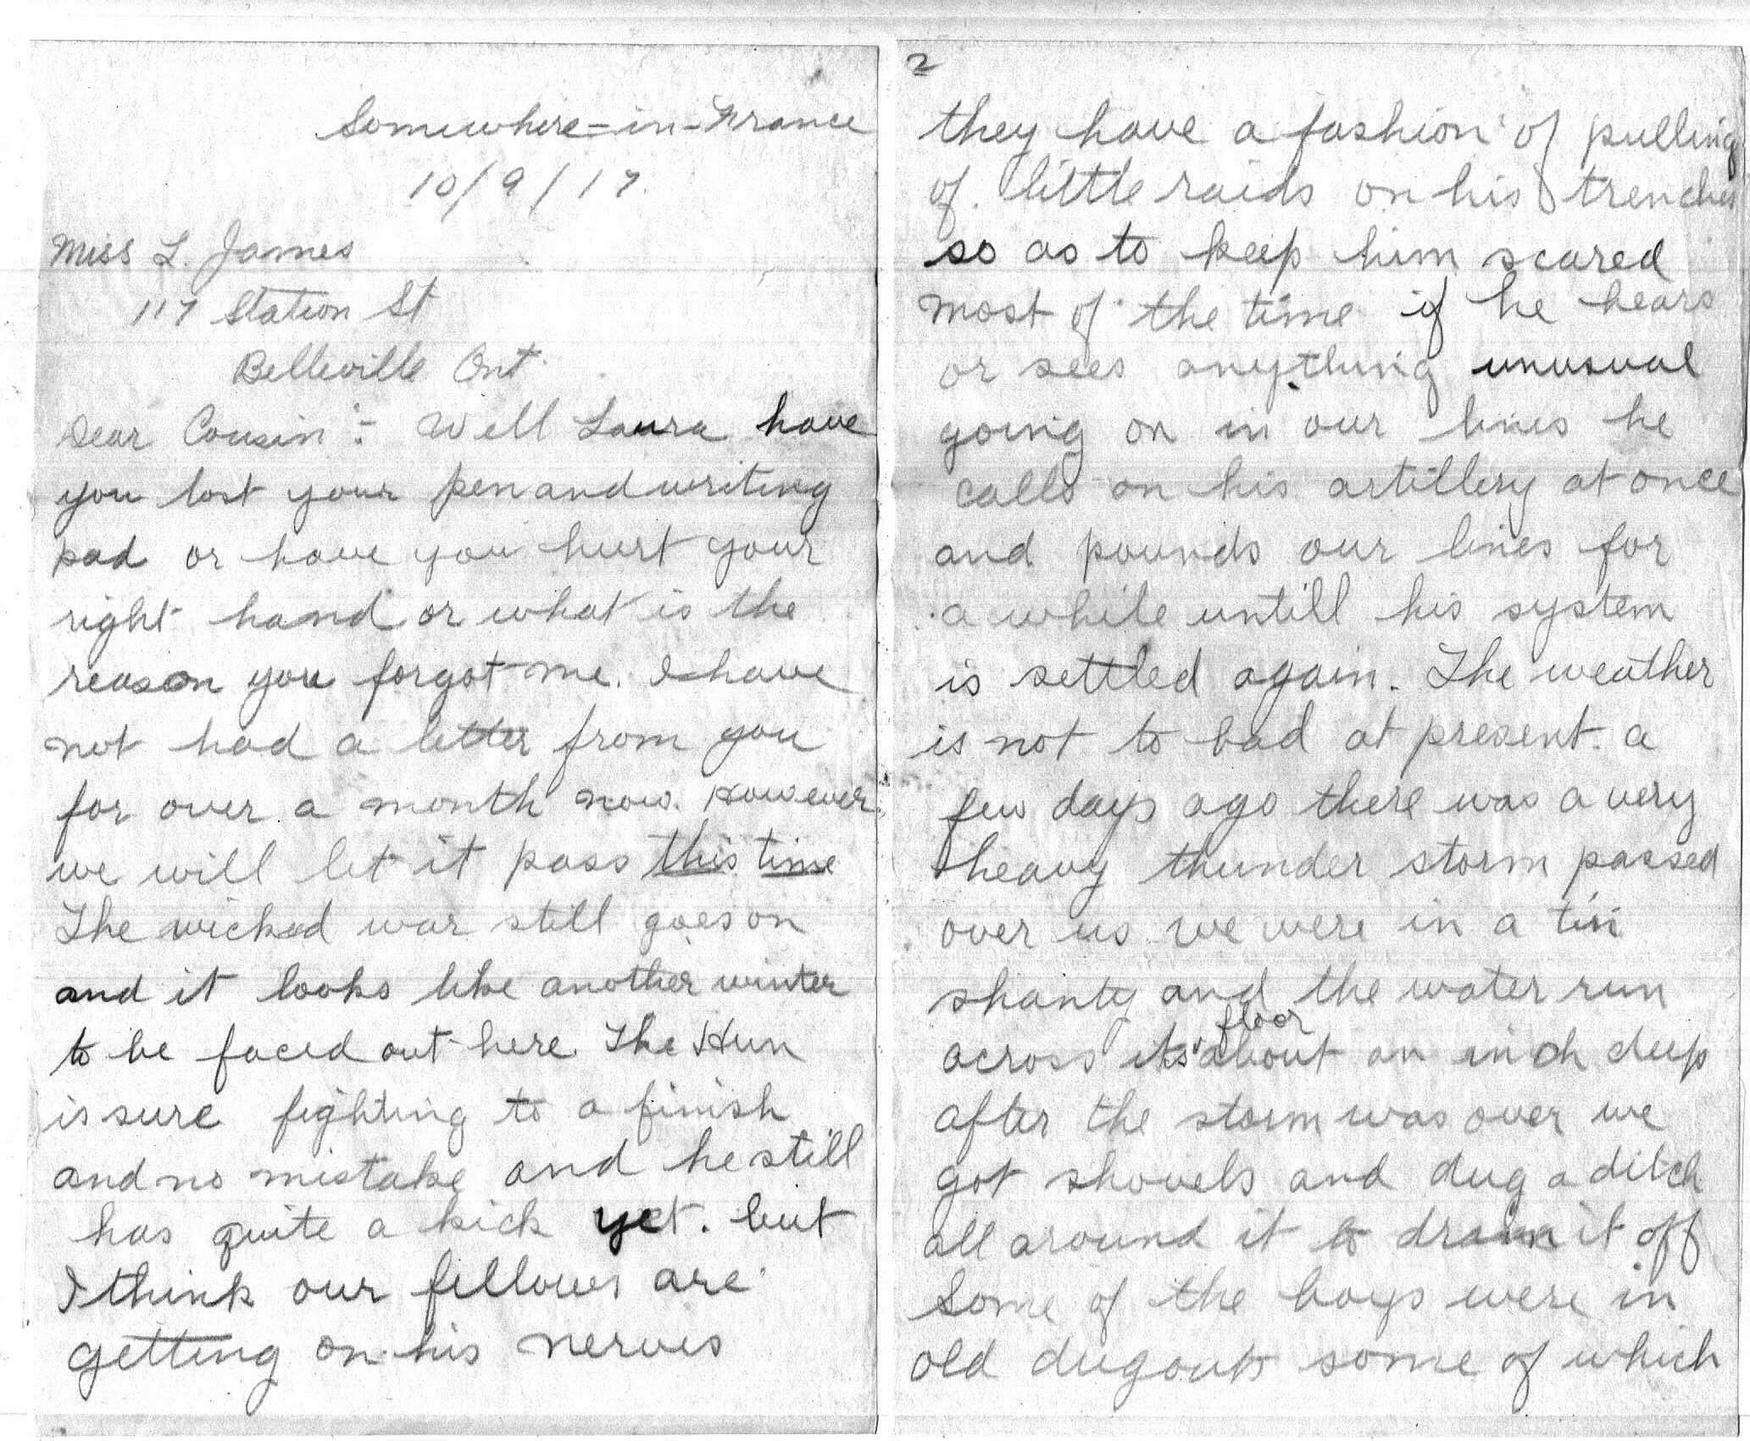 Somewhere-in-France
10/9/17.
Miss L. James
117 Station St
Belleville Ont.
Dear Cousin :- Well Laura have
you lost your pen and writing
pad or have you hurt your
right hand or what is the
reason you forgot me. I have
not had a letter from you
for over a month now. However
we will let it pass this time
The wicked war still goes on
and it looks like another winter
to be faced out here. The Hun
is sure fighting to a finish
and no mistake and he still
has quite a kick yet. but
I think our fellows are
getting on his nerves
2
they have a fashion of pulling
of little raids on his trenches
so as to keep him scared
most of the time if he hears
or sees anything unusual
going on in our lines he
calls on his artillery at once
and pounds our lines for
a while untill his system
is settled again. The weather
is not to bad at present. a
few days ago there was a very
heavy thunder storm passed
over us we were in a tin
shanty and the water run
across its floor about an inch deep
after the storm was over we
got shovels and dug a ditch
all around it to drain it off
Some of the boys were in
old dugouts some of which